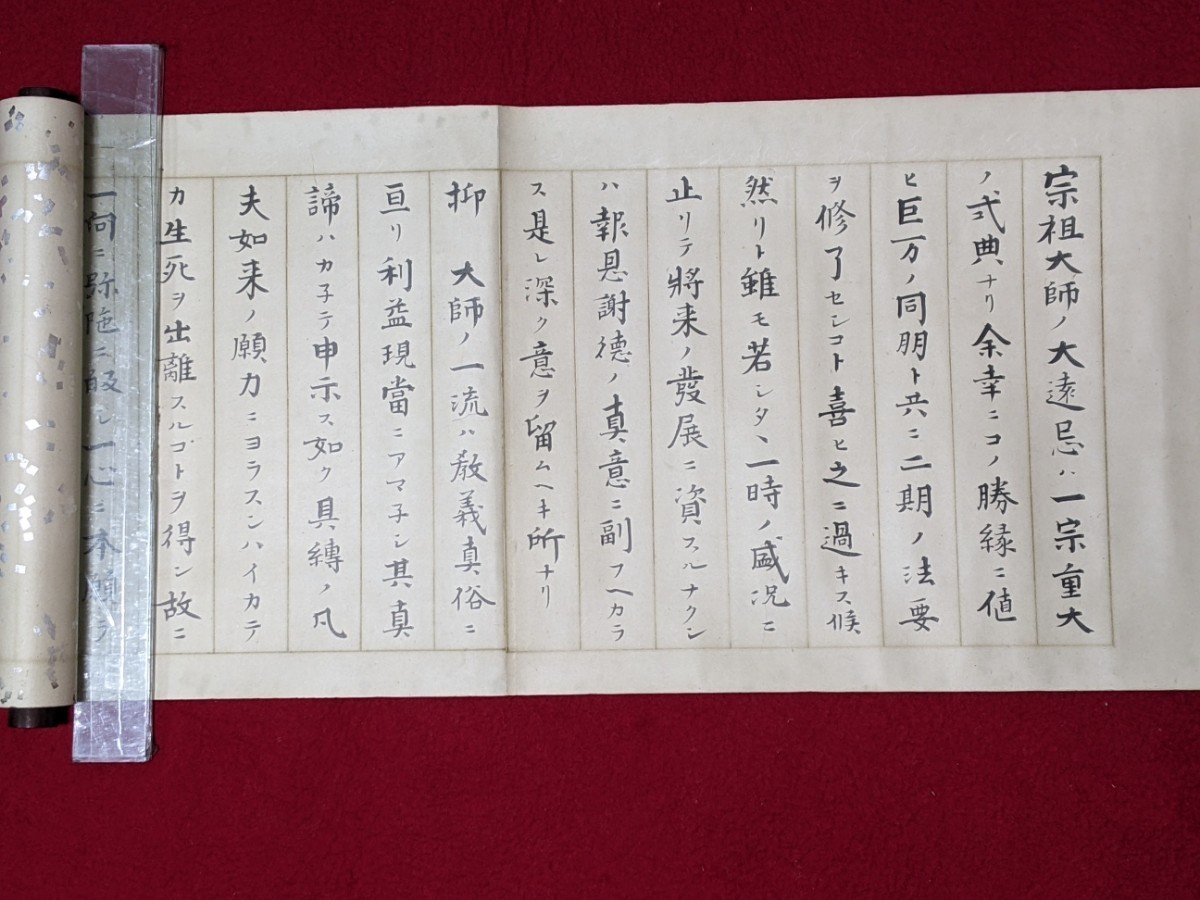 宗祖大師ノ大遠忌ハ一宗重大
ノ式典ナリ余幸ニコノ勝縁ニ値
ヒ巨万ノ同朋ト共ニ二期ノ法要
ヲ修了センコト喜ヒ之ニ過キス候
然リト雖モ若シタヽ一時ノ盛況ニ
止リテ將来ノ發展ニ資スルナクン
ハ報恩謝徳ノ真意ニ副フヘカラ
ス是レ深ク意ヲ留ムヘキ所ナリ
抑　大師ノ一流ハ教義真俗ニ
亘リ利益現當ニアマ子シ其真
諦ハカ子テ申示ス如ク具縛ノ凡
夫如来ノ願力ニヨラスンハイカテ
カ生死ヲ出離スルコトヲ得ン故ニ
一向ニ弥陀ニ帰シ一心ニ本願ヲ